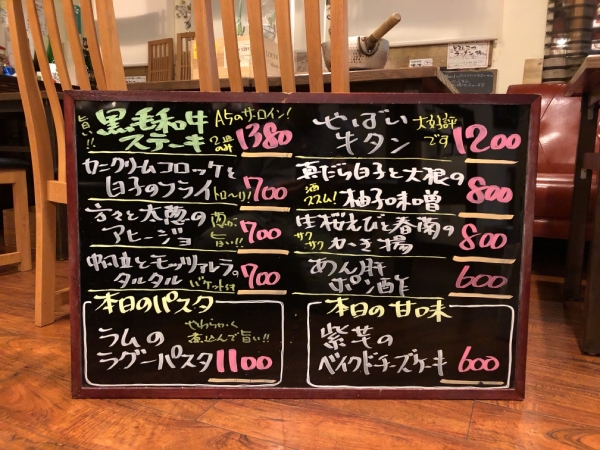 旨い!!
黒毛和牛 A5のサーロイン!
ステーキ 2組のみ 1380
カニクリームコロッケと
白子のフライ トローリ! 700
大葱の
アヒージョ 葱が旨い!! 700
帆立とモッツァレラの
タルタル バケット付 700
本日のパスタ
ラムの やわらかく煮込んで旨い!!
ラグーパスタ 1100
やばい
牛タン 大好評です 1200
真だら白子と大根の
酒ススム! 柚子味噌 800
生桜えびと春菊の
サクサク かき揚 800
あん肝
ポン酢 600
本日の甘味
紫芋の
ベイクドチーズケーキ 600